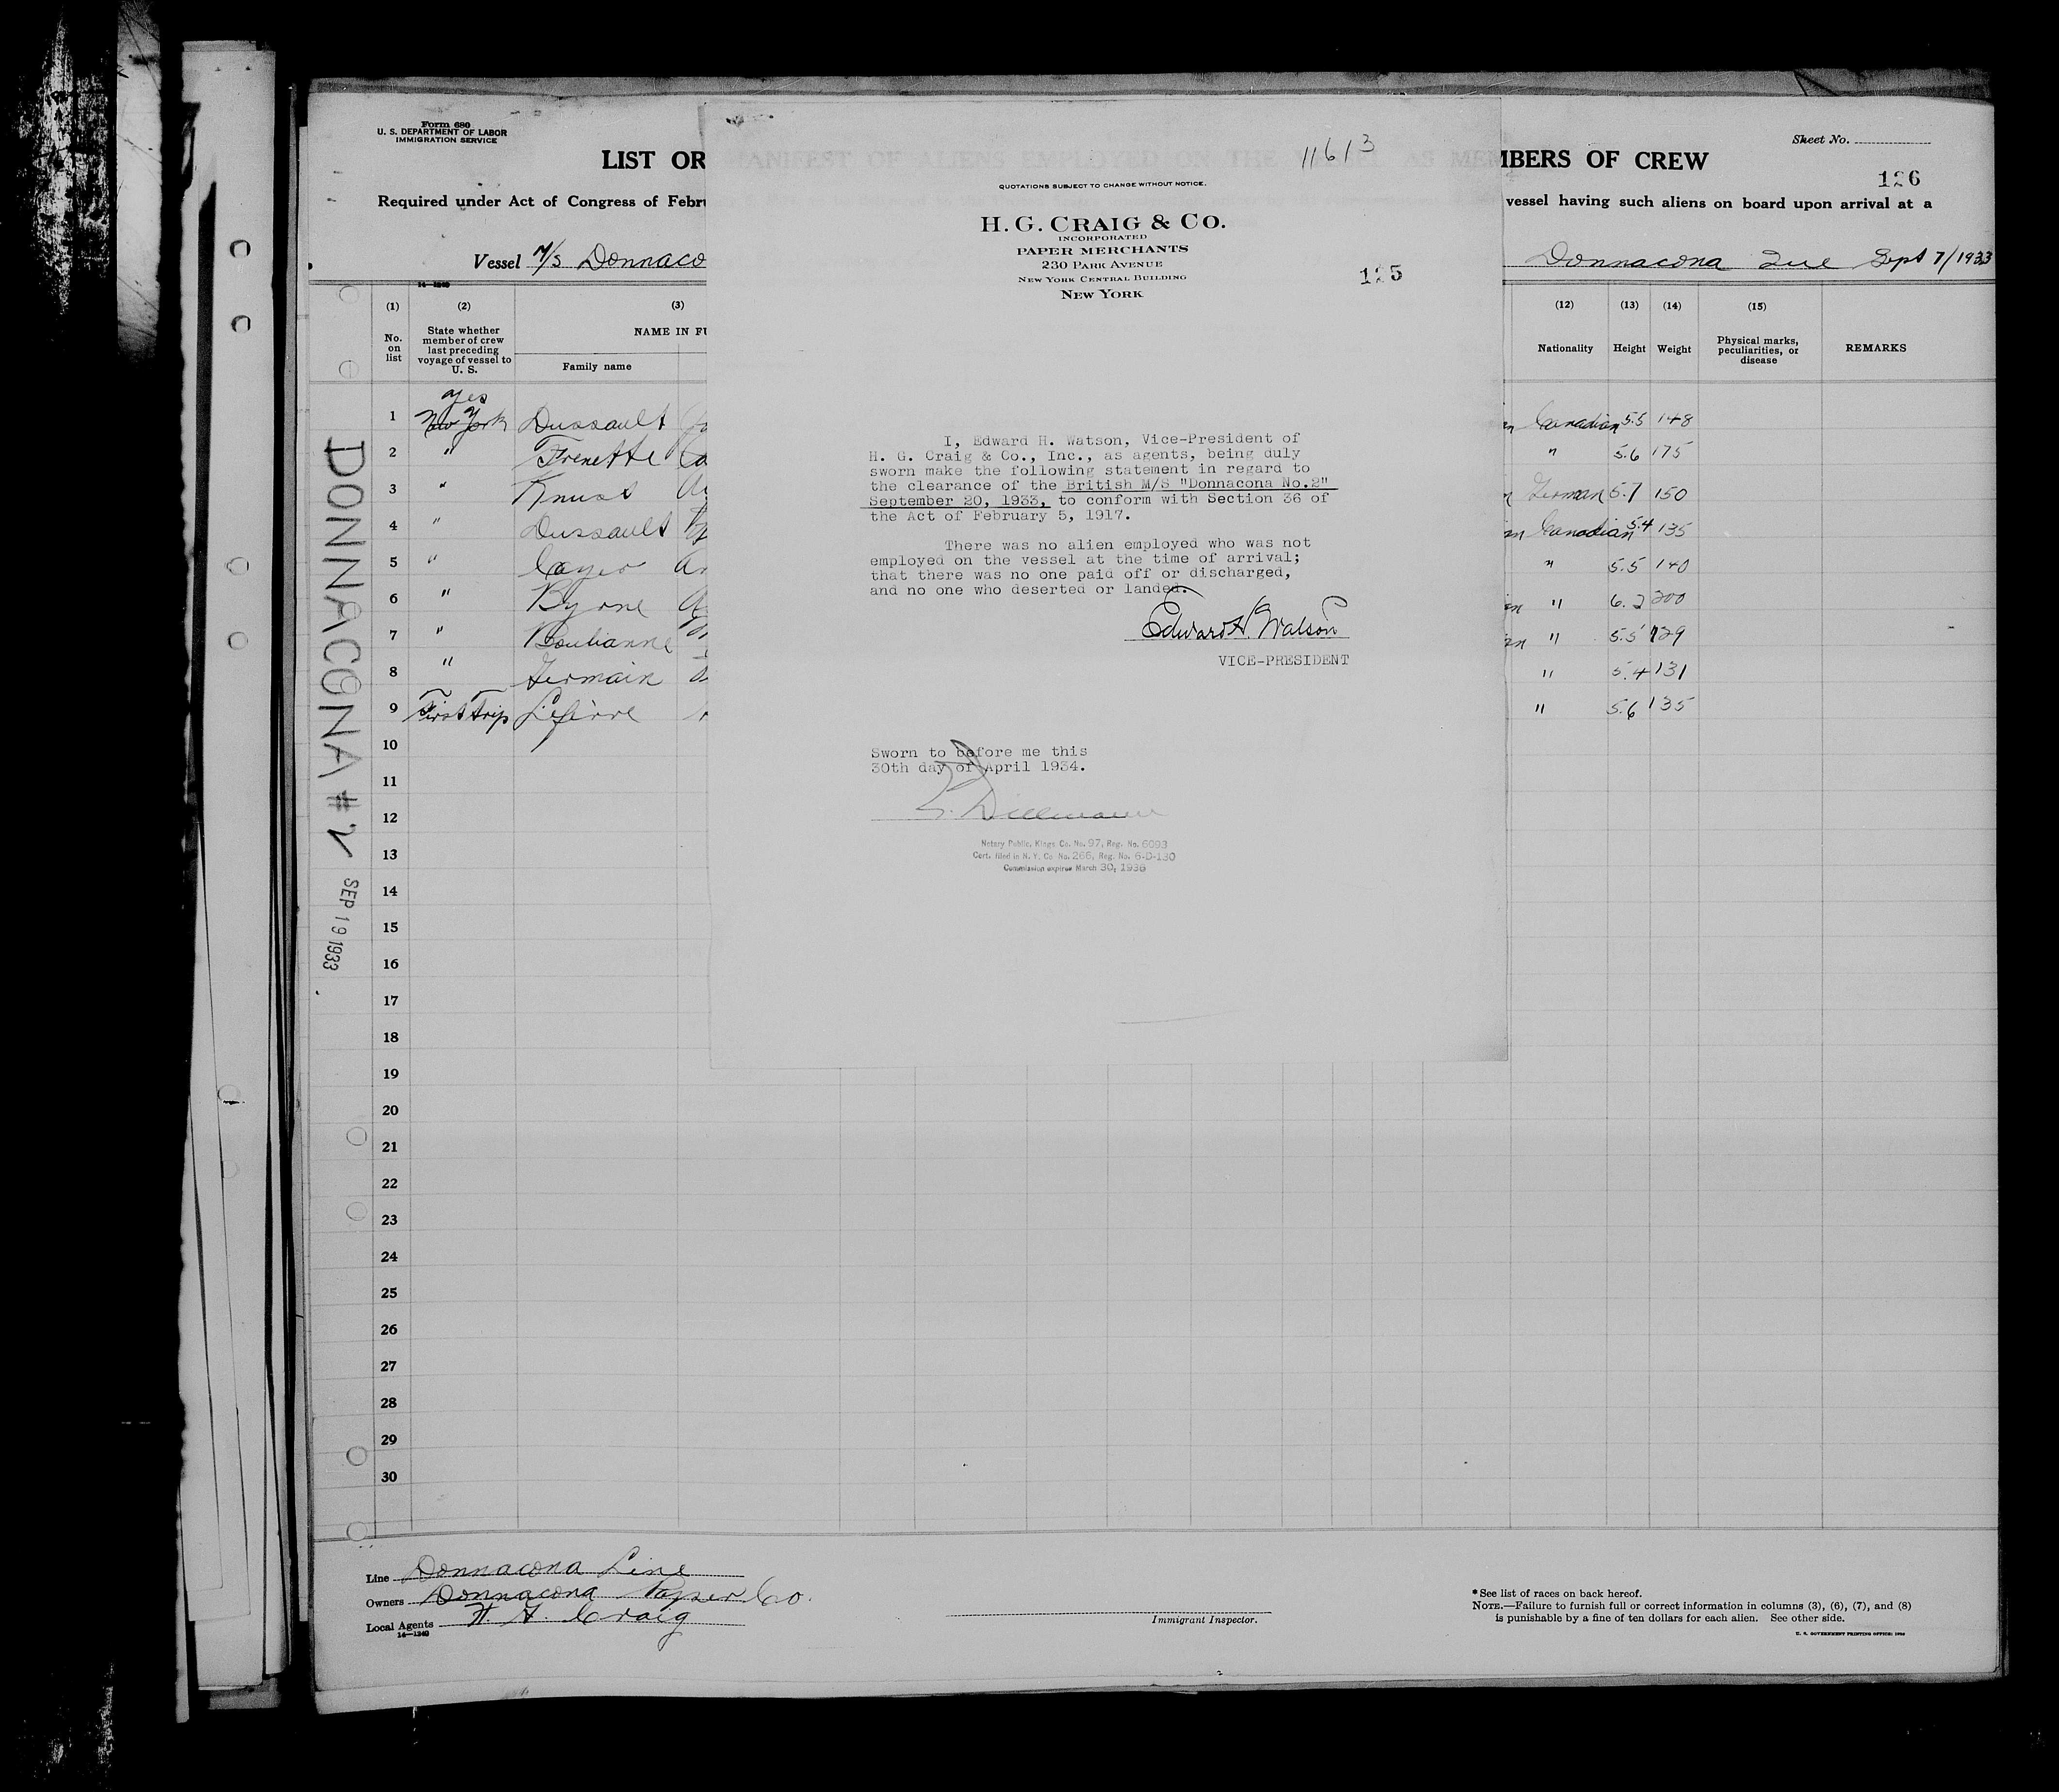 Form 680
U. S. DEPARTMENT OF LABOR
IMMIGRATION SERVICE
Sheet No.
LIST OR
MANIFEST OF ALIENS EMPLOYED ON THE
AS MEMBERS OF CREW
126
Required under Act of Congress of Febru
vessel having such aliens on board upon arrival at a
Vessel M/S Donnaco
Donnacona Que Sept 7/1933
14—1240
(1) (2) (3)
No. on list
State whether member of crew last preceding voyage of vessel to U. S.
NAME IN FU
Family name
(12) (13) (14) (15)
Nationality Height Weight
Physical marks, peculiarities, or disease
REMARKS
yes
1 New York Dussault Canadian 5.5 148
2 " Frenette " 5.6 175
3 " Knust German 5.7 150
4 " Dussault Canadian 5.4 135
5 " Cayer " 5.5 140
6 " Byrne " 6.2 200
7 " Boulianne " 5.5 129
8 " Germain " 5.4 131
9 First trip " 5.6 135
10
11
12
13
14
15
16
17
18
19
20
21
22
23
24
25
26
27
28
29
30
DONNACONA #2 SEP 19 1933
11613
QUOTATIONS SUBJECT TO CHANGE WITHOUT NOTICE.
H. G. CRAIG & CO.
INCORPORATED
PAPER MERCHANTS
230 PARK AVENUE
NEW YORK CENTRAL BUILDING
NEW YORK
125
I, Edward H. Watson, Vice-President of
H. G. Craig & Co., Inc., as agents, being duly
sworn make the following statement in regard to
the clearance of the British M/S "Donnacona No.2"
September 20, 1933, to conform with Section 36 of
the Act of February 5, 1917.
There was no alien employed who was not
employed on the vessel at the time of arrival;
that there was no one paid off or discharged,
and no one who deserted or landed.
Edward H. Watson
VICE-PRESIDENT
Sworn to before me this
30th day of April 1934.
Dillmann
Notary Public, Kings Co. No. 97, Reg. No. 6093
Cert. filed in N. Y. Co. No. 266, Reg. No. 6-D-130
Commission expires March 30, 1936
Line Donnacona Line
Owners Donnacona Paper Co.
Local Agents H. G. Craig
14—1240
Immigrant Inspector.
*See list of races on back hereof.
NOTE.—Failure to furnish full or correct information in columns (3), (6), (7), and (8)
is punishable by a fine of ten dollars for each alien. See other side.